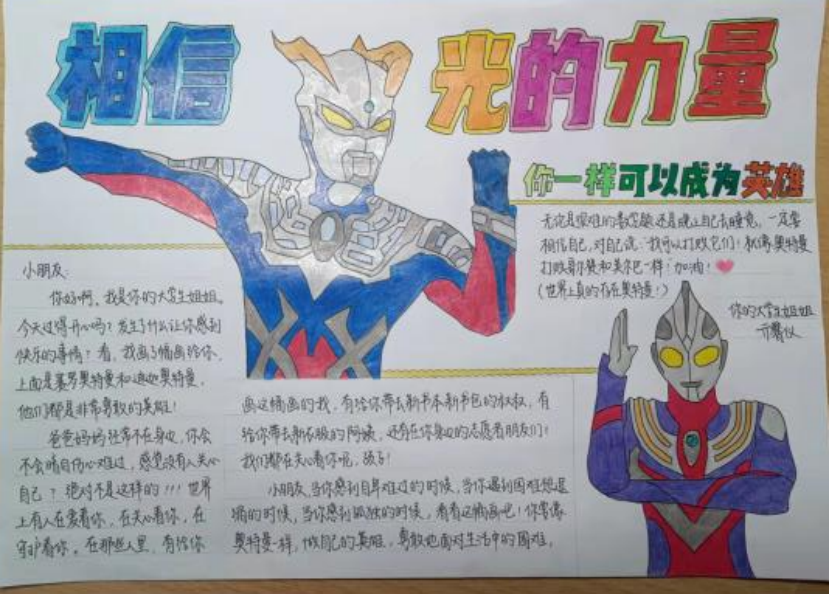 相信
光的力量
你一样可以成为英雄
小朋友:
你好啊,我是你的大学生姐姐。
今天过得开心吗?发生了什么让你感到
快乐的事情?看,我画了幅画给你,
上面是赛罗奥特曼和迪迦奥特曼,
他们都是非常勇敢的英雄!
爸爸妈妈经常不在身边,你会
不会暗自伤心难过,感觉没有人关心
自己?绝对不是这样的!!!世界
上有人在爱着你,在关心着你,在
守护着你。在那些人里,有给你
画这幅画的我,有给你带去新书本新书包的叔叔,有
给你带去新衣服的阿姨,还有在你身边的志愿者朋友们!
我们都在关心着你呢,孩子!
小朋友,当你感到自卑难过的时候,当你遇到困难想退
缩的时候,当你感到孤独的时候,看看这幅画吧!你要像
奥特曼一样,做自己的英雄,勇敢地面对生活中的困难。
无论是艰难的数学题,还是晚上自己去睡觉,一定要
相信自己,对自己说:我可以打败它们!就像奥特曼
打败哥尔赞和美尔巴一样!加油!
(世界上真的存在奥特曼!)
你的大学生姐姐